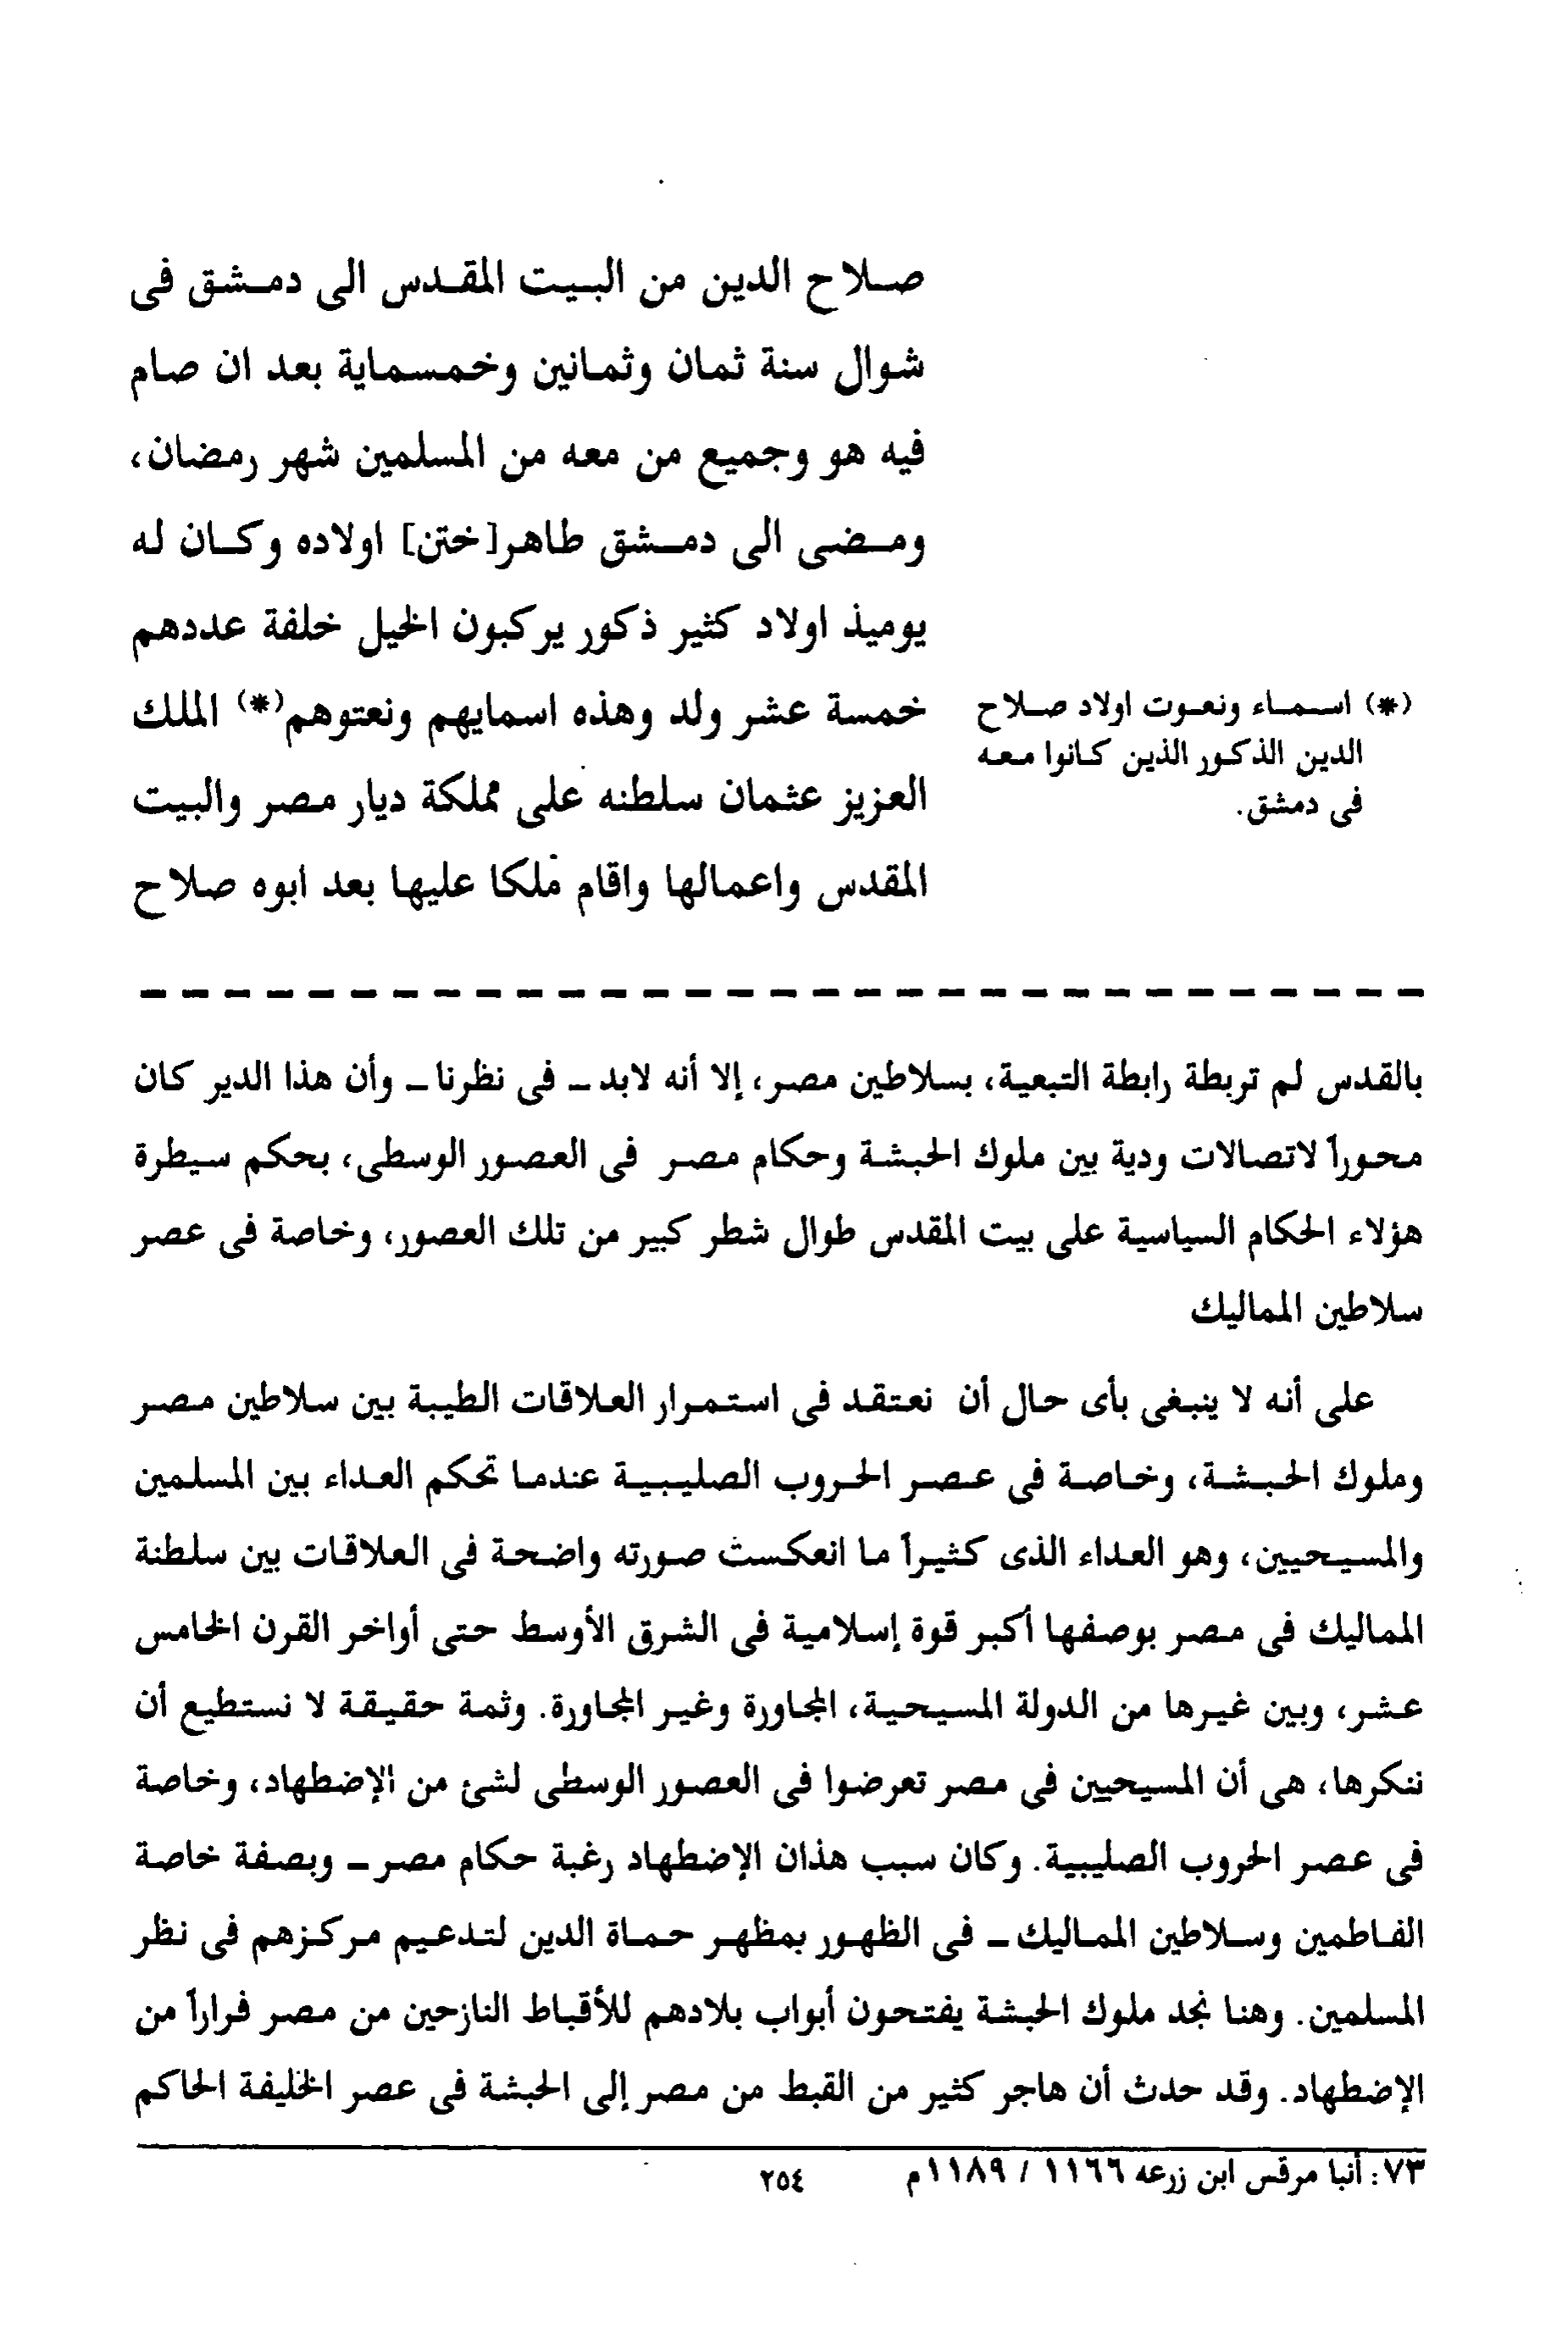 صلاح الدين من البيت المقدس الى دمشق فى
شوال سنة ثمان وثمانين وخمسماية بعد ان صام
فيه هو وجميع من معه من المسلمين شهر رمضان،
ومضى الى دمشق طاهر[ختن] اولاده وكان له
يوميذ اولاد كثير ذكور يركبون الخيل خلفة عددهم
خمسة عشر ولد وهذه اسمايهم ونعتوهم(*) الملك
العزيز عثمان سلطنه على مملكة ديار مصر والبيت
المقدس واعمالها واقام ملكا عليها بعد ابوه صلاح
(*) اسماء ونعوت اولاد صلاح
الدين الذكور الذين كانوا معه
فى دمشق.
بالقدس لم تربطة رابطة التبعية، بسلاطين مصر، إلا أنه لابد - فى نظرنا - وأن هذا الدير كان
محوراً لاتصالات ودية بين ملوك الحبشة وحكام مصر فى العصور الوسطى، بحكم سيطرة
هؤلاء الحكام السياسية على بيت المقدس طوال شطر كبير من تلك العصور، وخاصة فى عصر
سلاطين المماليك
على أنه لا ينبغى بأى حال أن نعتقد فى استمرار العلاقات الطيبة بين سلاطين مصر
وملوك الحبشة، وخاصة فى عصر الحروب الصليبية عندما تحكم العداء بين المسلمين
والمسيحيين، وهو العداء الذى كثيراً ما انعكست صورته واضحة فى العلاقات بين سلطنة
المماليك فى مصر بوصفها أكبر قوة إسلامية فى الشرق الأوسط حتى أواخر القرن الخامس
عشر، وبين غيرها من الدولة المسيحية، المجاورة وغير المجاورة. وثمة حقيقة لا نستطيع أن
ننكرها، هى أن المسيحيين فى مصر تعرضوا فى العصور الوسطى لشئ من الإضطهاد، وخاصة
فى عصر الحروب الصليبية. وكان سبب هذان الإضطهاد رغبة حكام مصر - وبصفة خاصة
الفاطمين وسلاطين المماليك - فى الظهور بمظهر حماة الدين لتدعيم مركزهم فى نظر
المسلمين. وهنا نجد ملوك الحبشة يفتحون أبواب بلادهم للأقباط النازحين من مصر فراراً من
الإضطهاد. وقد حدث أن هاجر كثير من القبط من مصر إلى الحبشة فى عصر الخليفة الحاكم
٧٣: أنبا مرقس ابن زرعه ١١٦٦ / ١١٨٩م
٢٥٤